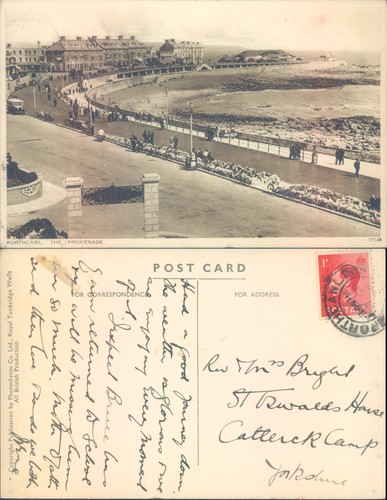 PORTHCAWL. THE PROMENADE
77148
POST CARD
FOR CORRESPONDENCE
FOR ADDRESS
Copyright Publication by Photochrom Co. Ltd., Royal Tunbridge Wells
All British Production
Had a good journey down.
The weather is glorious & we
are enjoying every moment
I expect Bruce has
been returned to School
by well
so much. Both Patk
send their love
PORTHCAWL
Rev & Mrs Bright
St Oswalds House
Catterick Camp
Yorkshire